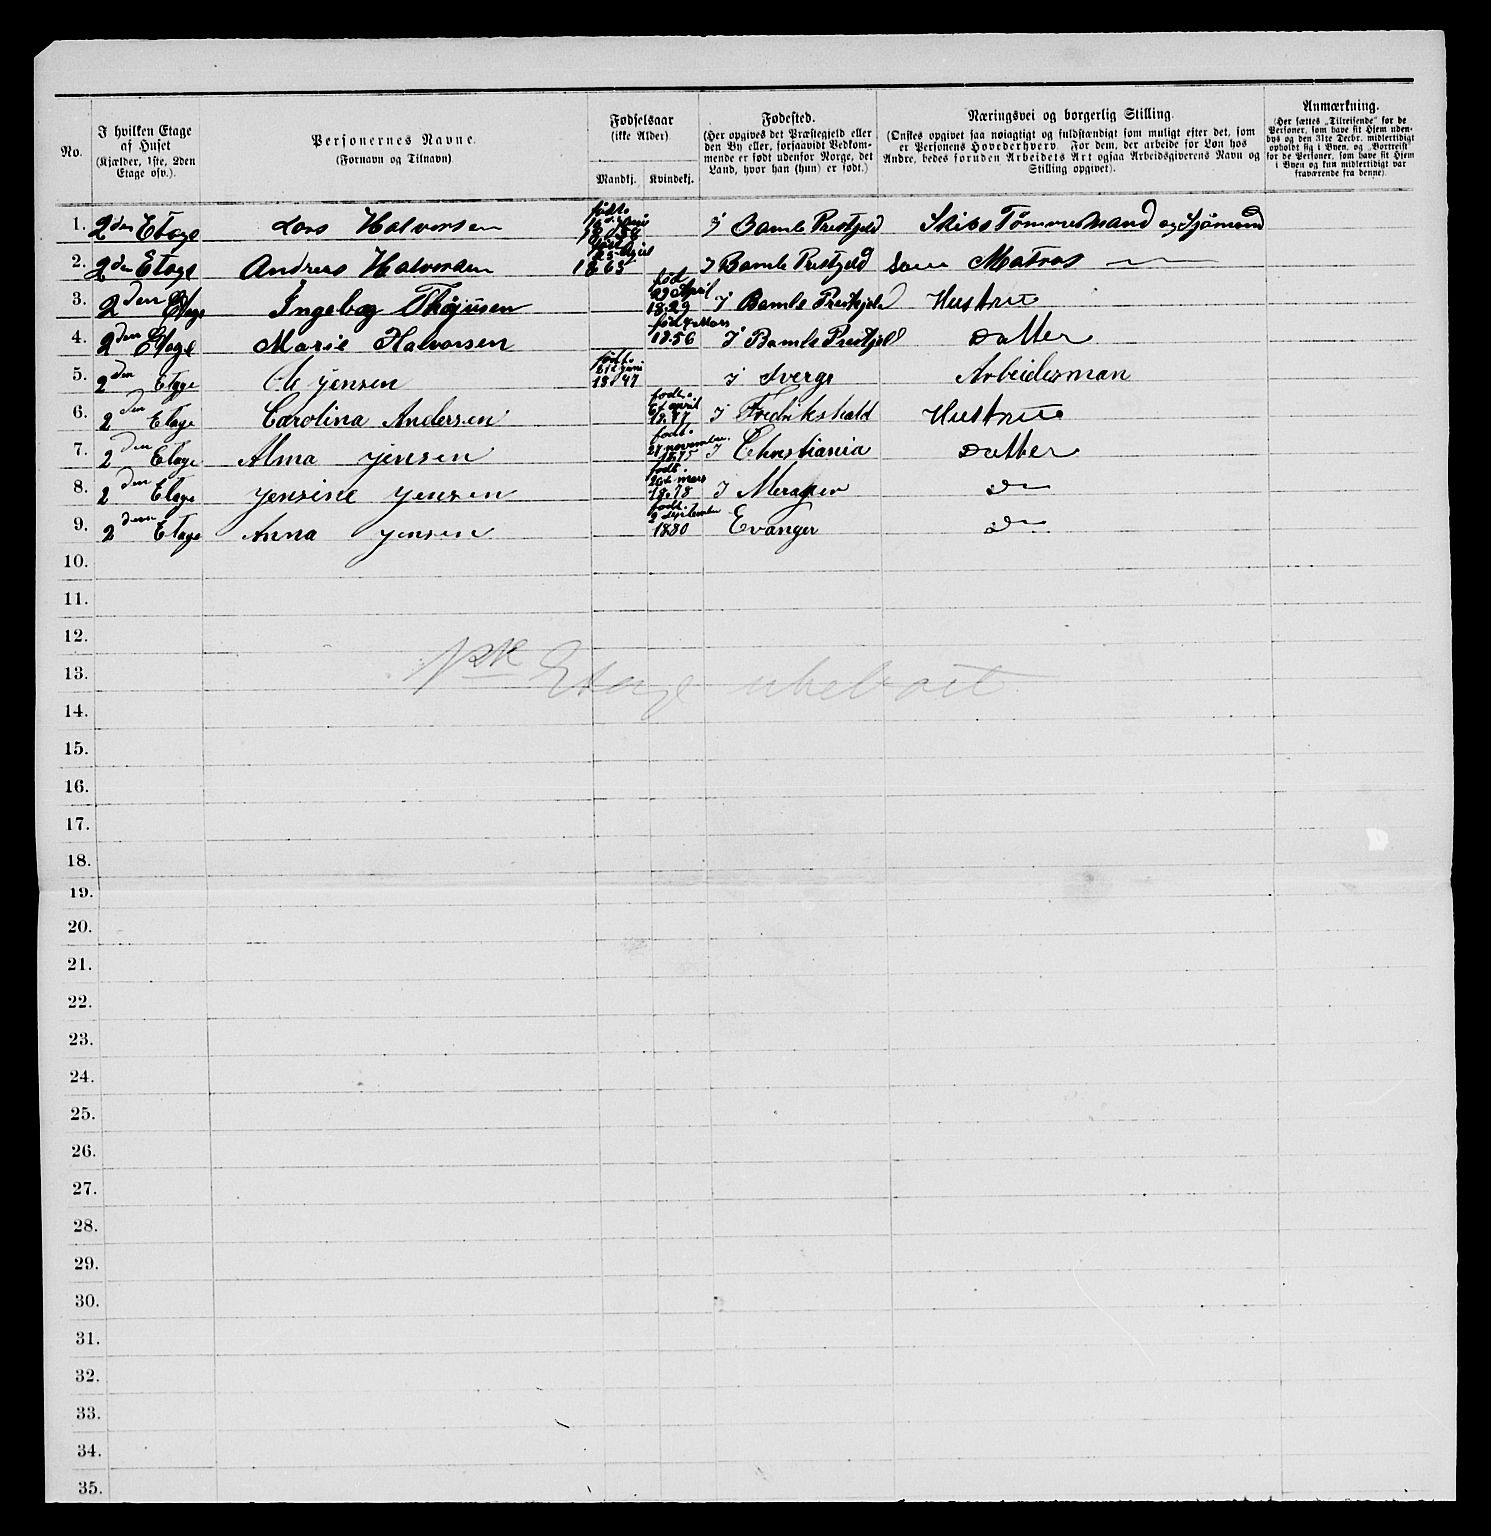 No.
I hvilken Etage af Huset (Kjælder, 1ste, 2den Etage osv.).
Personernes Navne. (Fornavn og Tilnavn)
Fødselsaar (ikke Alder).
Mandkj. Kvindekj.
Fødested. (Her opgives det Præstegjeld eller den By eller, forsaavidt Vedkommende er født udenfor Norge, det Land, hvor han (hun) er født.)
Næringsvei og borgerlig Stilling. (Ønskes opgivet saa nøiagtigt og fuldstændigt som muligt efter det, som er Personens Hovederhverv. For dem, der arbeide for Løn hos Andre, bedes foruden Arbeidets Art ogsaa Arbeidsgiverens Navn og Stilling opgivet).
Anmærkning. (Her sættes „Tilreisende“ for de Personer, som have sit Hjem udenbys og den 31te Decbr. midlertidigt opholdt sig i Byen, og „Bortreist“ for de Personer, som have sit Hjem i Byen og kun midlertidigt var fraværende fra denne).
1. 2den Etage Lars Halvorsen født. I Bamle Prestjeld Skibs Tømmermand og Sjømand
2. 2den Etage Andreas Halvorsen 1863 I Bamle Prestjeld som Matros
3. 2den Etage Ingebog født 29 April 1829 I Bamle Prestjeld Hustrue
4. 2den Etage Marie Halvorsen født 4 Mars 1856 I Bamle Prestjeld Datter
5. 2den Etage Ole Jensen født. 1847 I Sverge Arbeidesman
6. 2den Etage Carolina Andersen født. april I Fredrikshald Hustrue
7. 2den Etage Alma Jensen født. 27 november 1875 I Christiania Datter
8. 2den Etage Jensine Jensen født. mars 1878 I Meraker do
9. 2den Etage Anna Jensen født. 2 September 1880 Evanger do
10.
11.
12.
13. 1ste Etage ubeboet
14.
15.
16.
17.
18.
19.
20.
21.
22.
23.
24.
25.
26.
27.
28.
29.
30.
31.
32.
33.
34.
35.